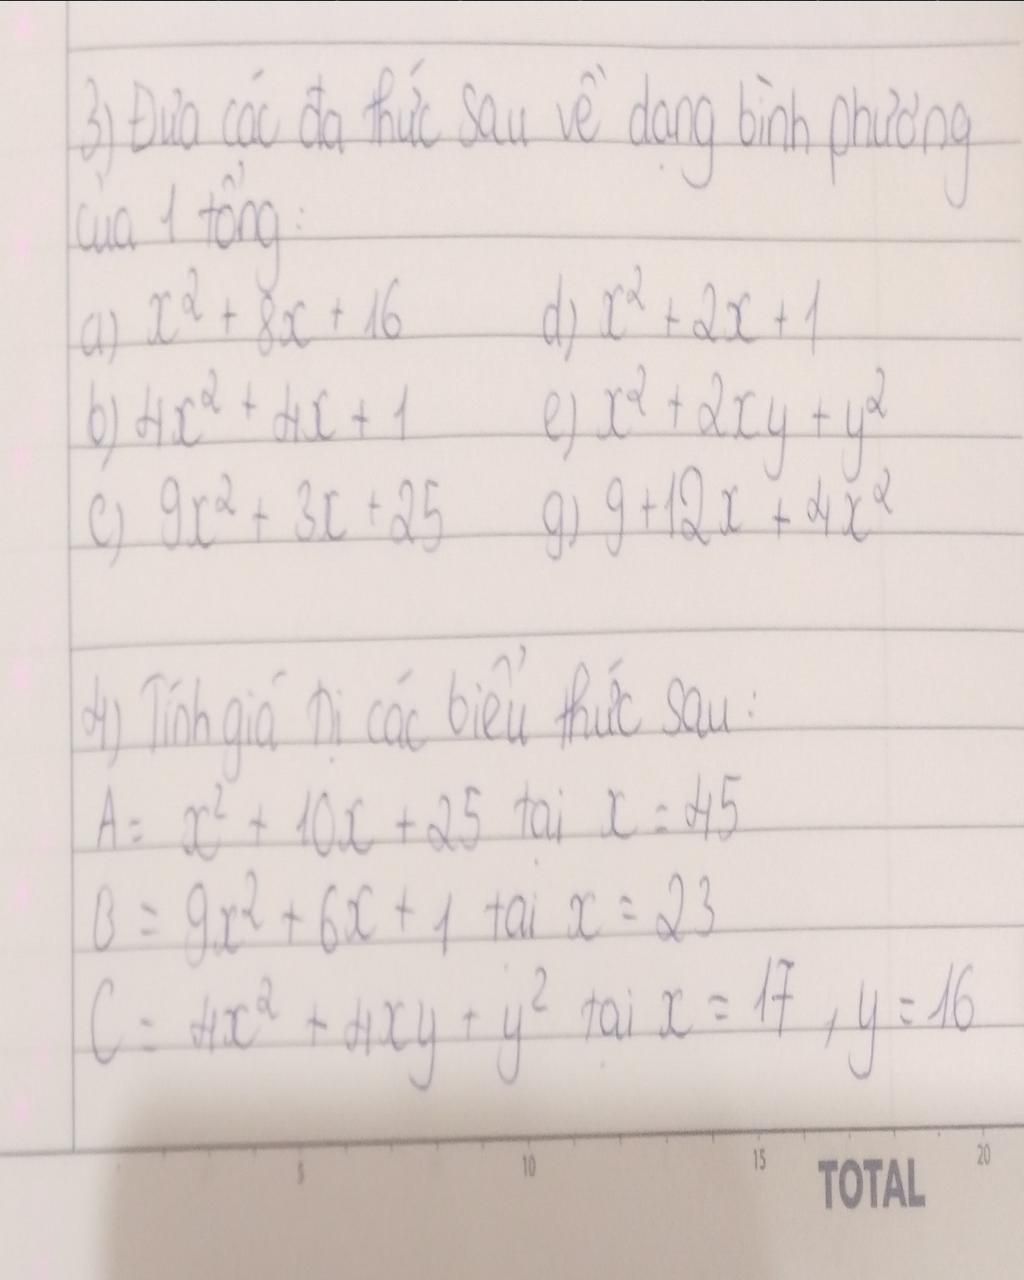 3) Đưa các đa thức sau về dạng bình phương
của 1 tổng:
a) x² + 8x + 16 d) x² + 2x + 1
b) 4x² + 4x + 1 e) x² + 2xy + y²
c) 9x² + 3x + 25 g) 9 + 12x + 4x²
4) Tính giá trị các biểu thức sau:
A = x² + 10x + 25 tại x = 45
B = 9x² + 6x + 1 tại x = 23
C = 4x² + 4xy + y² tại x = 17, y = 16
5 10 15 20
TOTAL